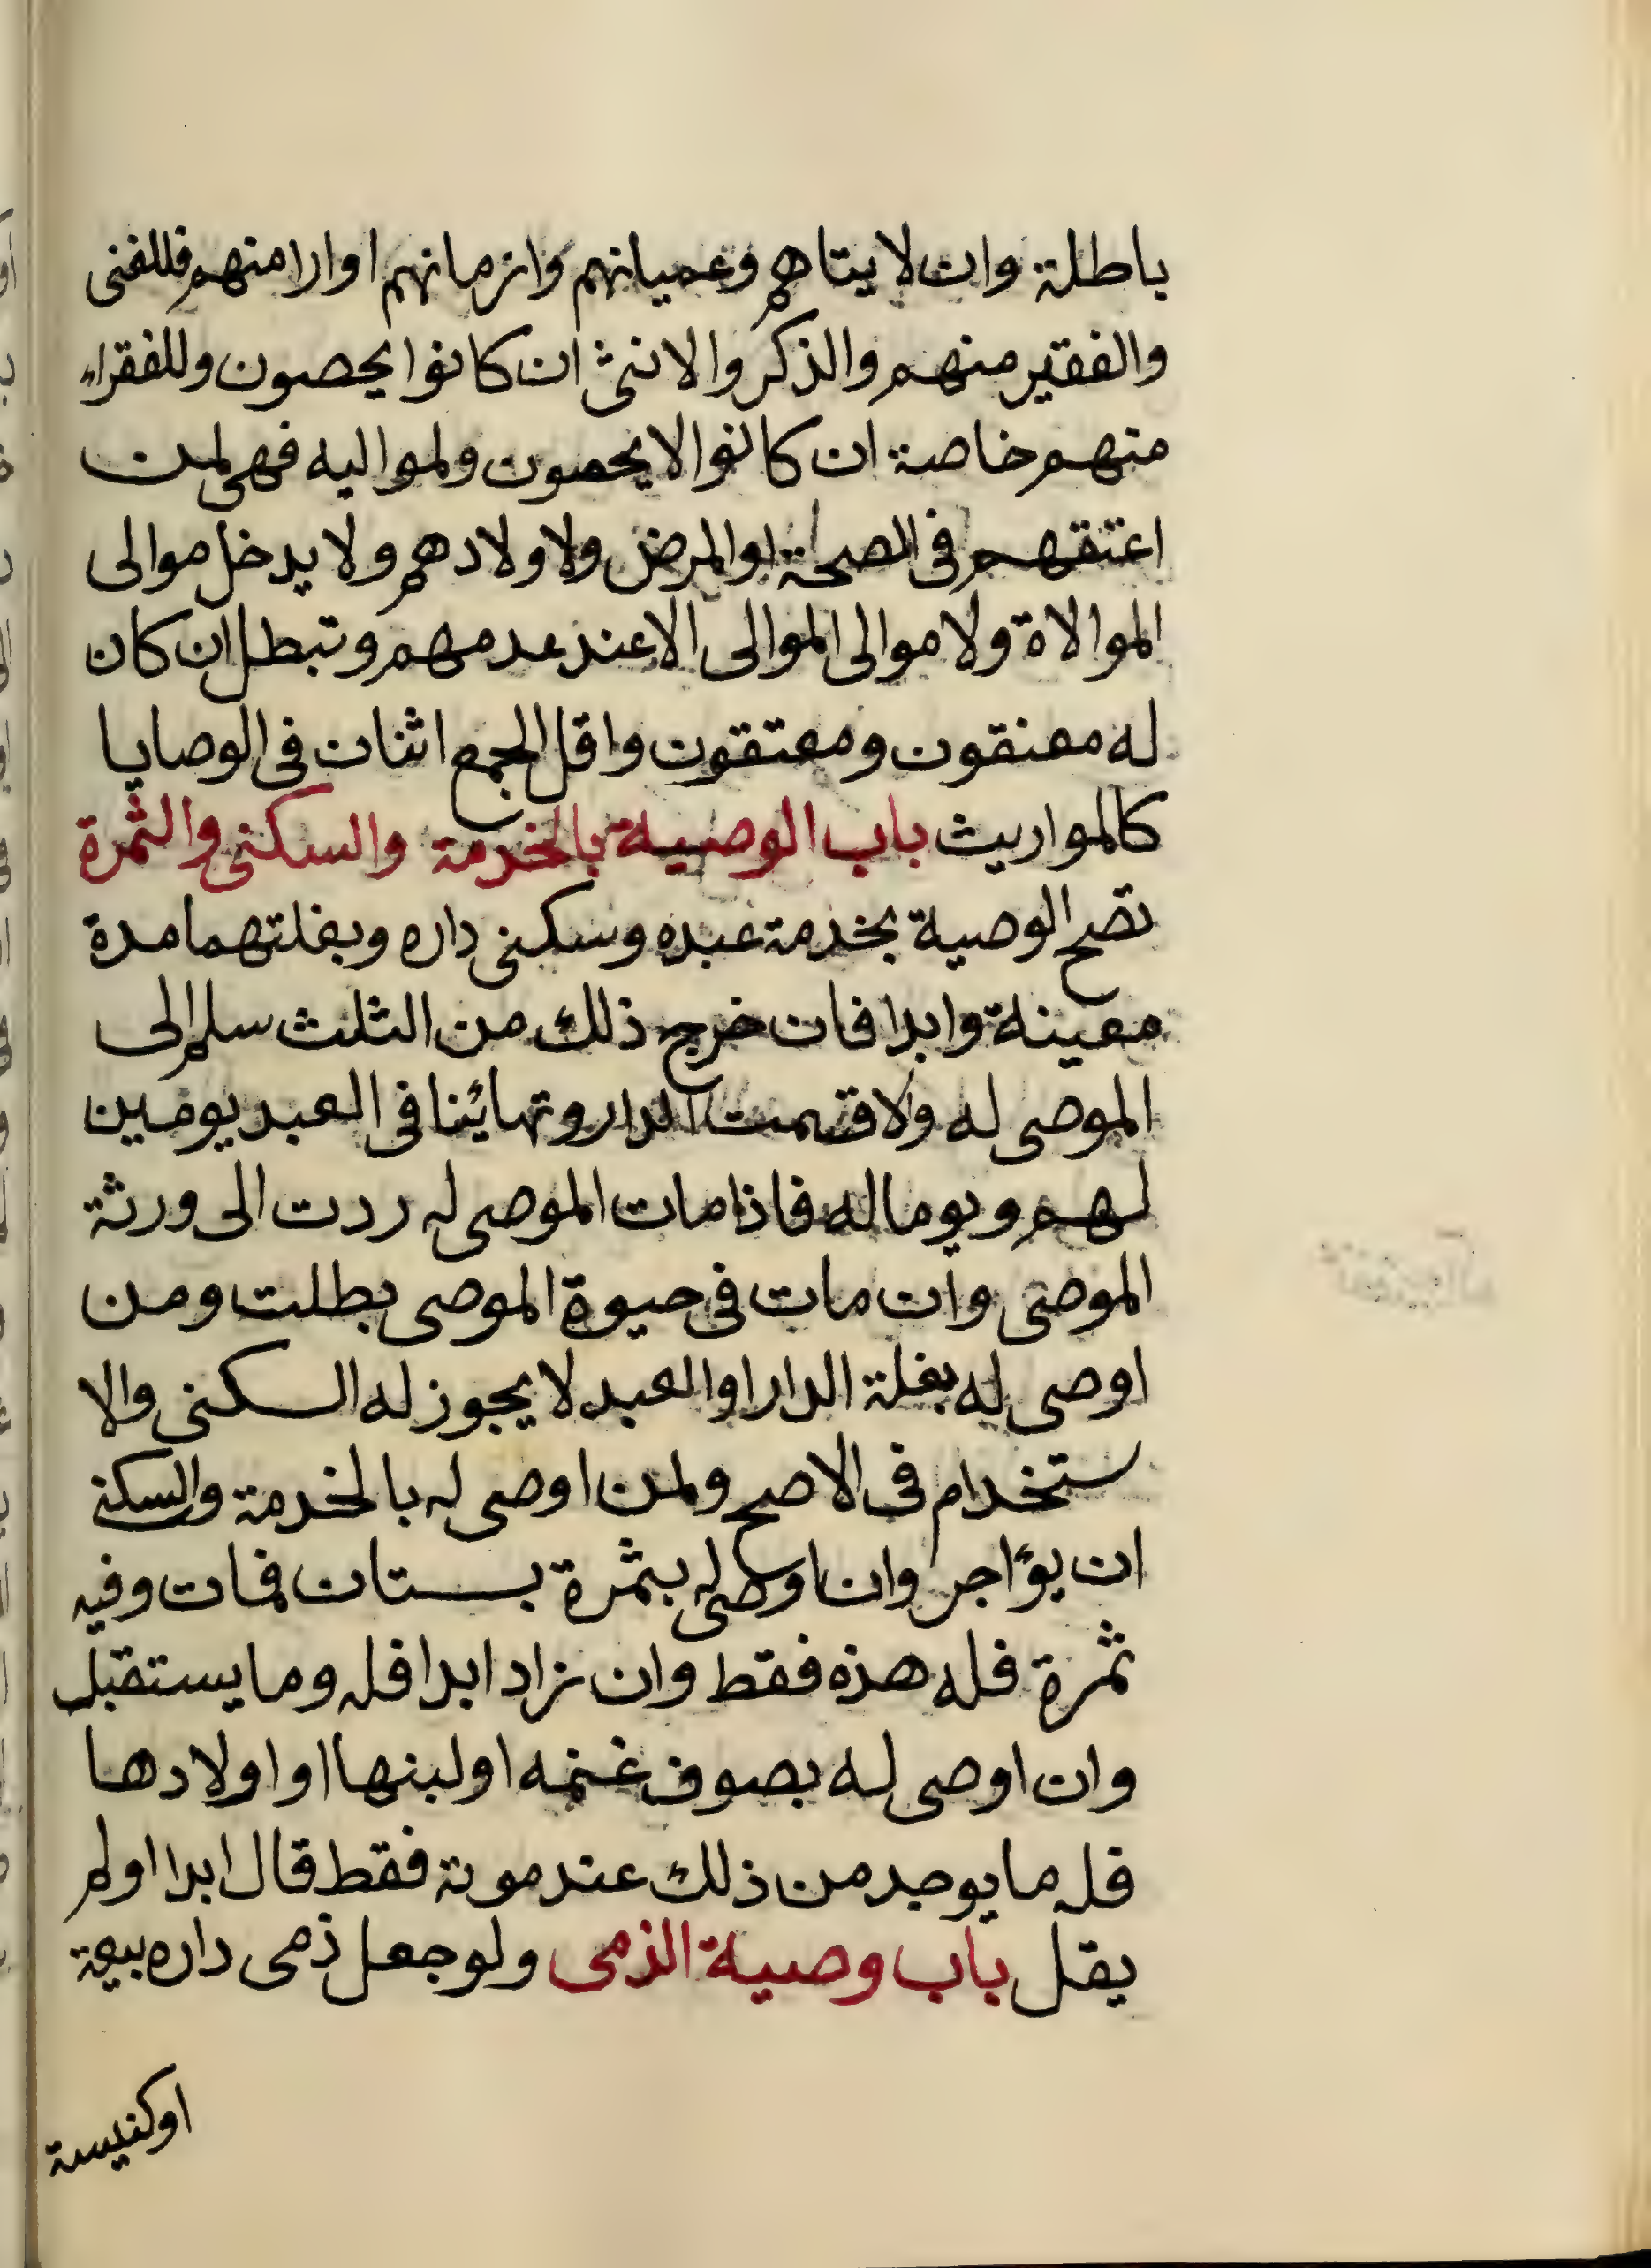 باطلة وان لايتاهم وعميانهم وازمانهم اوارامنهم فللغنى
والفقير منهم والذكر والانثى ان كانوا يحصون وللفقراء
منهم خاصة ان كانوا لايحصون ولمواليه فهى لمن
اعتقهم فى الصحة او المرض ولاولادهم ولا يدخل موالى
الموالاة ولا موالى الموالى الا عند عدمهم وتبطل ان كان
له معتقون ومعتقون واقل الجمع اثنان فى الوصايا
كالمواريث باب الوصية بالخدمة والسكنى والثمرة
تصح الوصية بخدمة عبده وسكنى داره وبغلتهما مدة
معينة وابدا فان خرج ذلك من الثلث سلم الى
الموصى له ولا قسمت الدار وتهائينا فى العبد يومين
لهم ويوما له فاذا مات الموصى له ردت الى ورثة
الموصى وان مات فى حيوة الموصى بطلت ومن
اوصى له بغلة الدار او العبد لا يجوز له السكنى والا
ستخدام فى الاصح ولمن اوصى له بالخدمة والسكنى
ان يؤاجر وان اوصى له بثمرة بستان فمات وفيه
ثمرة فله هذه فقط وان زاد ابدا فله وما يستقبل
وان اوصى له بصوف غنمه او لبنها او اولادها
فله ما يوجد من ذلك عند موته فقط قال ابدا اولم
يقل باب وصية الذمى ولو جعل ذمى داره بيعة
اوكنيسة